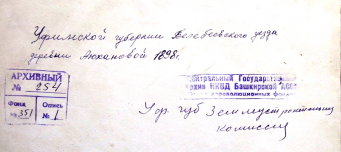 Уфимской губернии Белебеевского уезда
деревни Аюхановой 1898г.
АРХИВНЫЙ
№ 254
Фонд Опись
№ 351 № 1
Центральный Государственный
Архив НКВД Башкирской АССР
Уф. губ Землеустроительной
комиссии